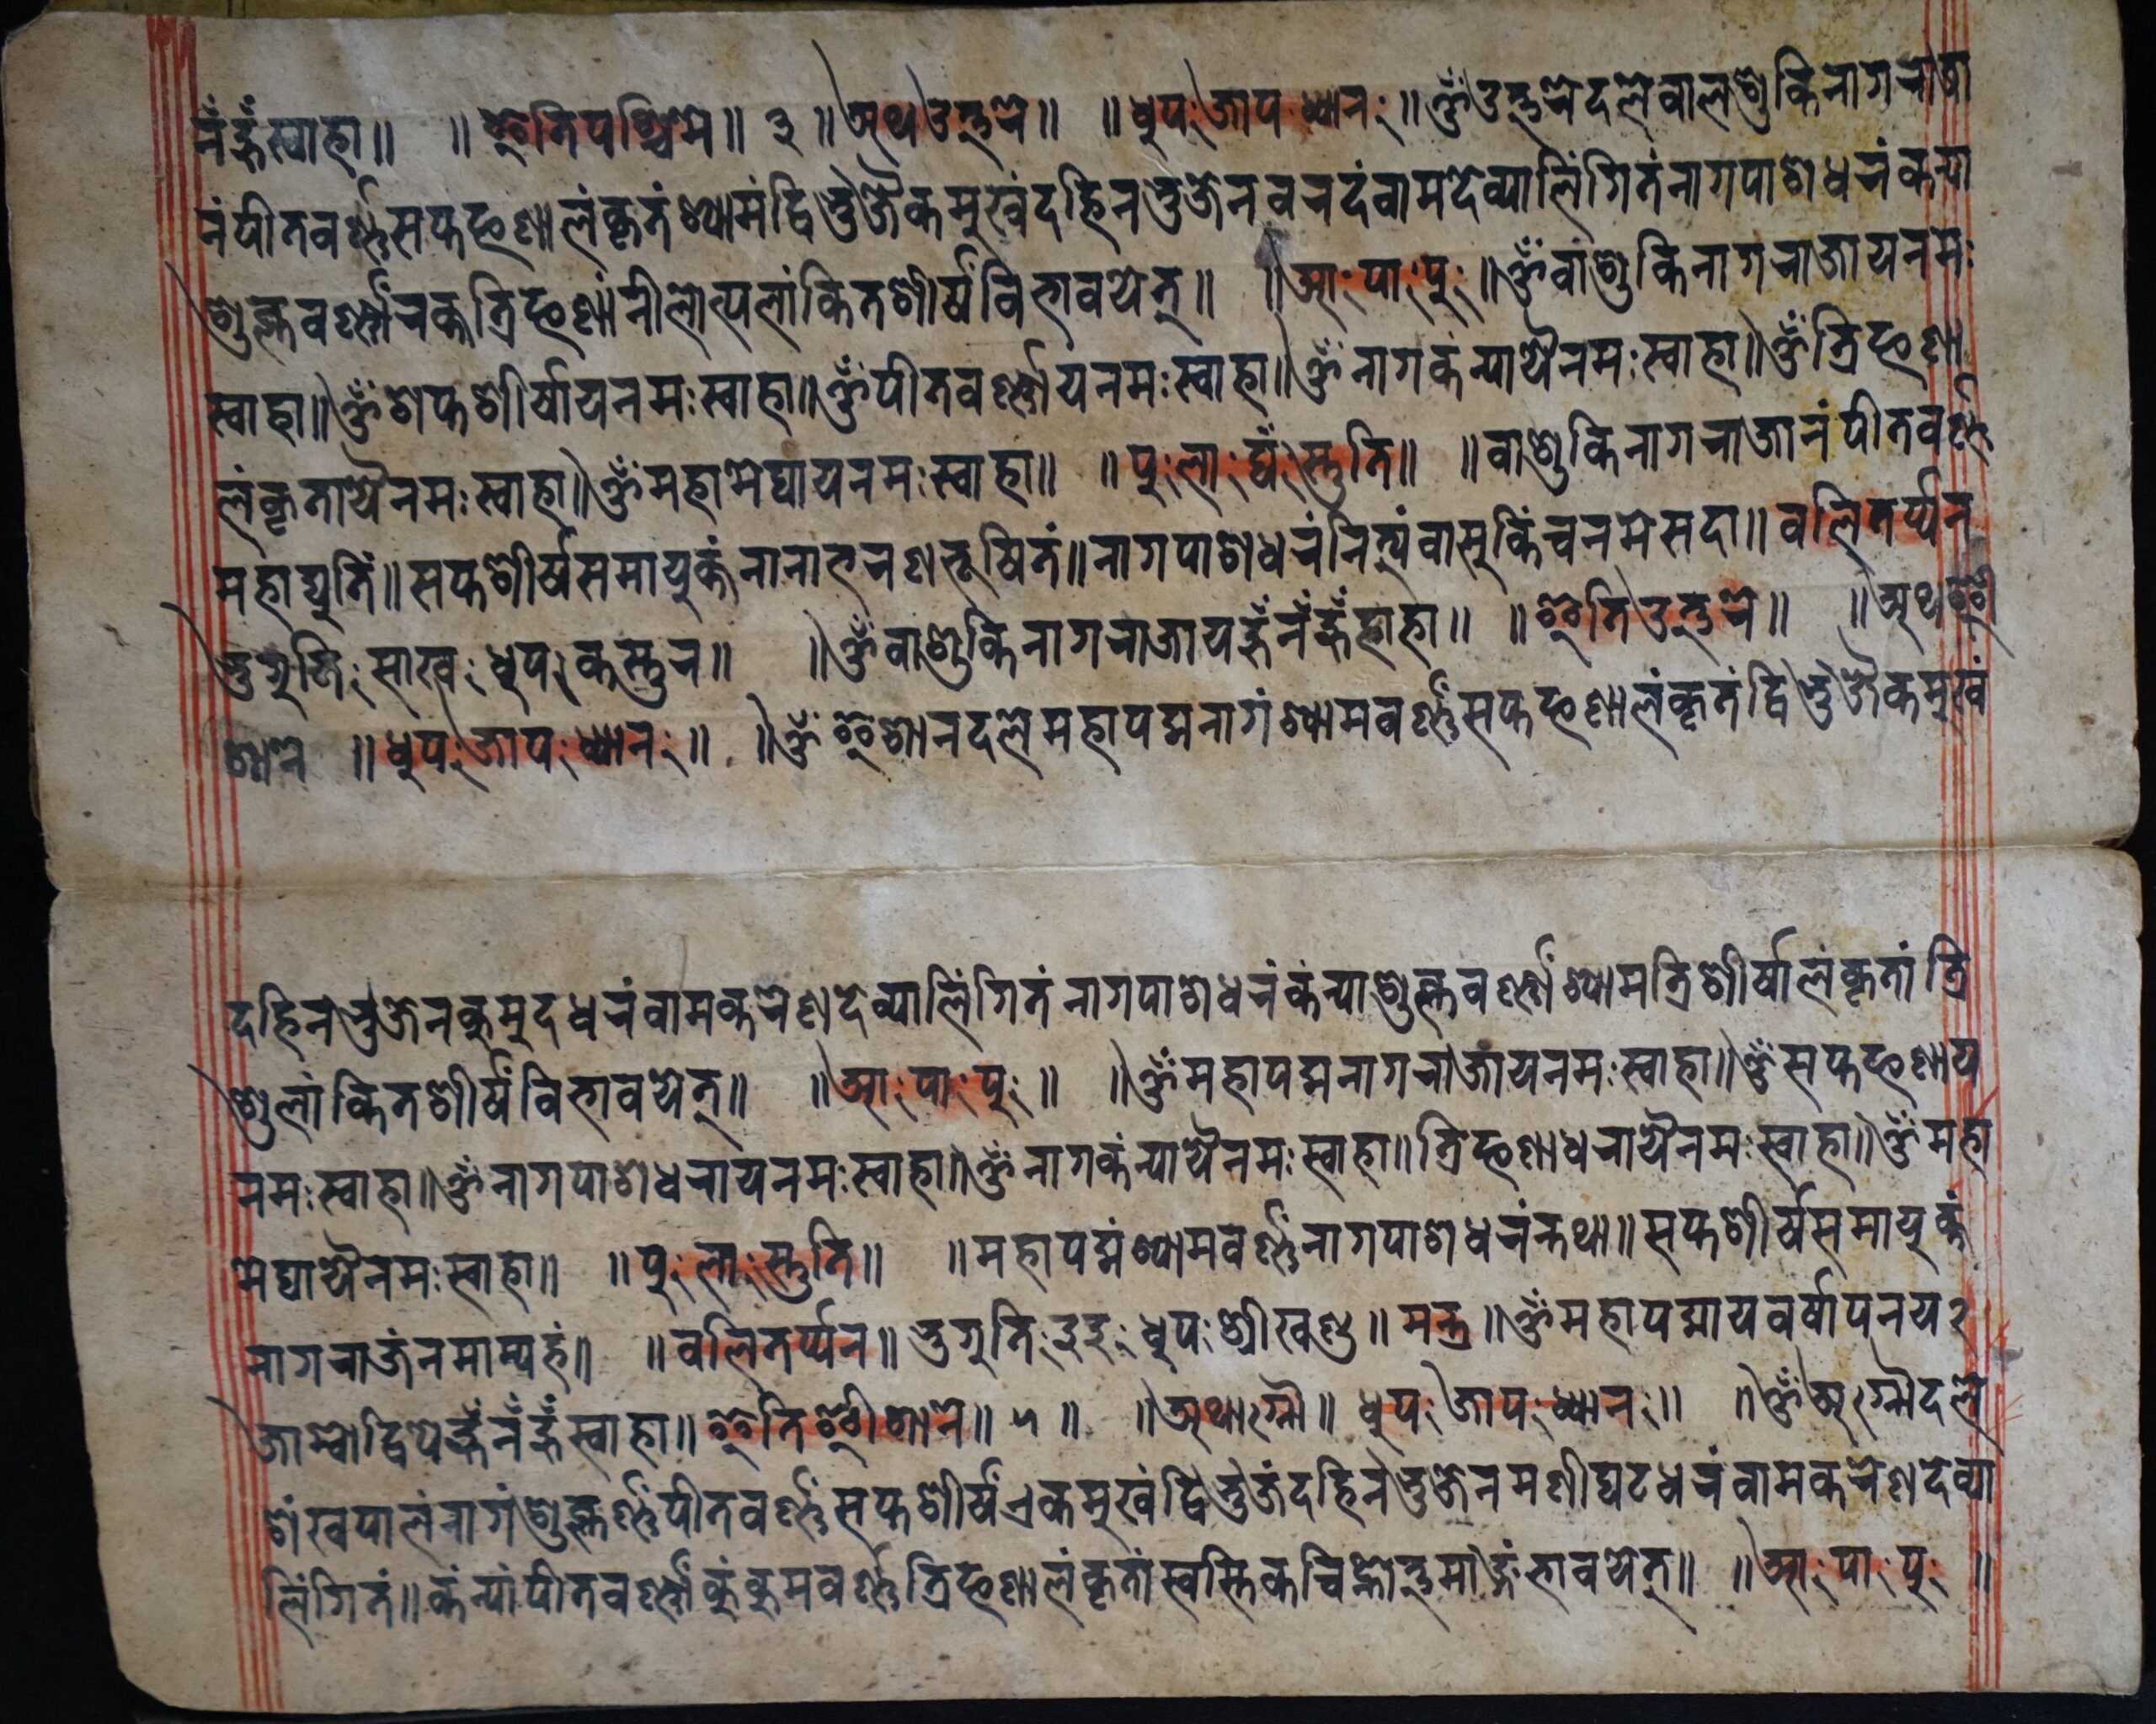 नँहूँस्वाहा॥ ॥इतिपश्चिमे॥ ३ ॥अथउत्तरे॥ ॥धुपःजापःध्यान॰॥ॐउत्तरेदलेवालशुकिनागराजा
नंपीतवर्ण्णसप्तफणालंकृतंश्यामंद्विभुजैकमुखंदहिनभुजेनवरदंवामदेव्यालिंगितंनागपाशधरंकन्या
शुक्लवर्ण्णांरक्तत्रिफणांनीलोत्पलांकितशीर्षंविभावयेत्॥ ॥आःपाःपुः॥ॐवांशुकिनागराजायनमः
स्वाहा॥ॐशप्तशीर्षायनमःस्वाहा॥ॐपीतवर्ण्णायनमःस्वाहा॥ॐनागकंन्यायैनमःस्वाहा॥ॐत्रिफणा
लंकृतायैनमःस्वाहा॥ॐमहामेघायनमःस्वाहा॥ ॥पुःलाःघंःस्तुति॥ ॥वाशुकिनागराजानंपीतवर्ण्ण
महाद्युतिं॥सप्तशीर्षसमायुक्तंनानाभरणभूषितं॥नागपाशधरंनित्यंवासुकिंचनमेसदा॥वलितर्प्पन
भुगुजिःसाखःधुपःकस्तुर॥ ॥ॐवाशुकिनागराजायहूँनँहूँस्वाहा॥ ॥इतिउत्तरे॥ ॥अथई
शाने ॥धुपःजापःध्यानः॥ ॥ॐइशानदलेमहापद्मनागंश्यामवर्ण्णंसप्तफणालंकृतंद्विभुजैकमुखं
दहिनभुजेनकुमुदधरंवामकरेणदेव्यालिंगितंनागपाशधरंकंन्याशुक्लवर्ण्णांश्यामत्रिशीर्षालंकृतांत्रि
शुलांकितशीर्षंविभावयेत्॥ ॥आःपाःपुः॥ ॥ॐमहापद्मनागराजायनमःस्वाहा॥ॐसप्तफणाय
नमःस्वाहा॥ॐनागपाशधरायनमःस्वाहा॥ॐनागकंन्यायैनमःस्वाहा॥त्रिफणाधरायैनमःस्वाहा॥ॐमहा
मेघायैनमःस्वाहा॥ ॥पुःलाःस्तुति॥ ॥महापद्मंश्यामवर्ण्णंनागपाशधरंन्तथा॥सप्तशीर्षसमायुक्तं
नागराजंनमाम्यहं॥ ॥वलितर्प्पन॥भुगुतिः धुपःश्रीखण्ड॥मन्त्र॥ॐमहापद्मायवर्षापनय२
जाम्वोद्विपेहूँनँहूँस्वाहा॥इतिईशाने॥५॥ ॥अथाग्नौ॥धुपःजापःध्यानः॥ ॥ॐअग्नौदले
शंखपालंनागंशुक्लर्ण्णंपीतवर्ण्णंसप्तशीर्षंएकमुखंद्विभुजंदहिनभुजेनमणीघटधरंवामकरेणदेव्या
लिंगितं॥कंन्यांपीतवर्ण्णांकुंकुमवर्ण्णत्रिफणालंकृतांस्वस्तिकचिह्नोत्तमाङ्गंभावयेत्॥ ॥आःपाःपुः॥